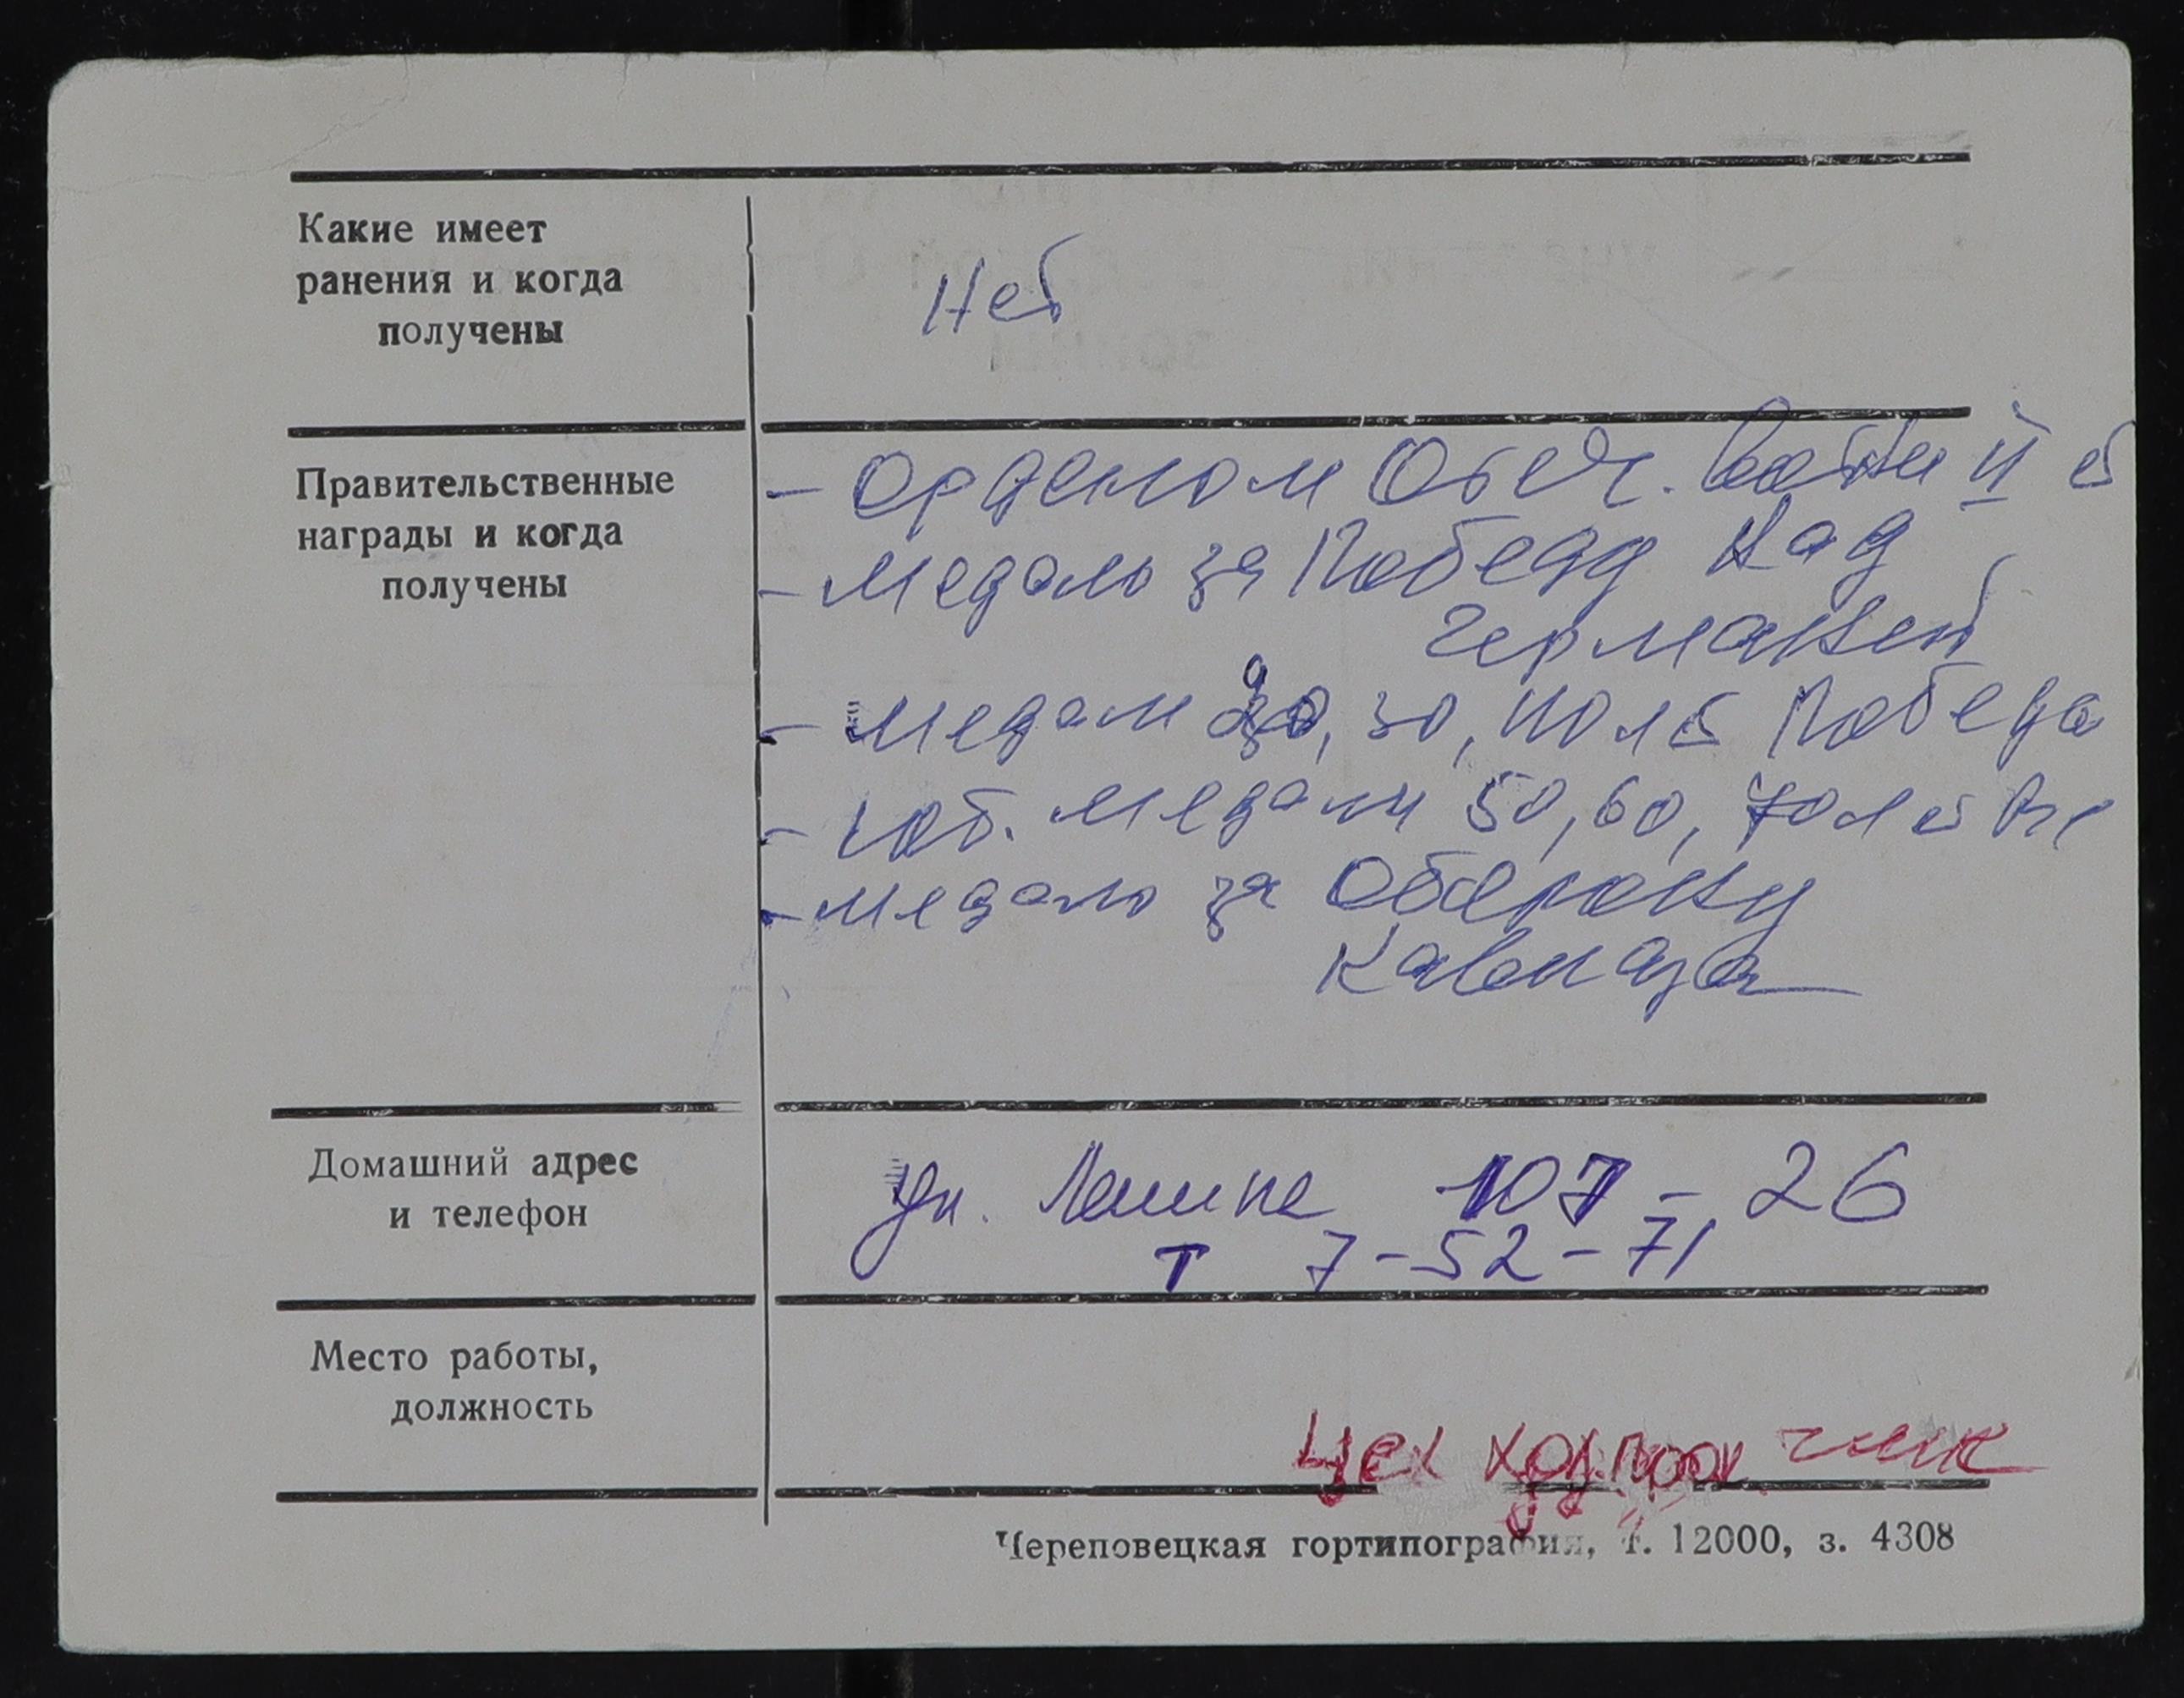 Какие имеет
ранения и когда
получены
Нет
Правительственные
награды и когда
получены
- Орденом Отеч. Войны II с
- Медаль за Победу над
Германией
- Медали 20, 30, 40 лет Победа
- юб. медали 50, 60, 70 лет ВС
- Медаль за Оборону
Кавказа
Домашний адрес
и телефон
ул. Ленина 107 - 26
т 7-52-71
Место работы,
должность
Цех
Череповецкая гортипография, т. 12000, з. 4308